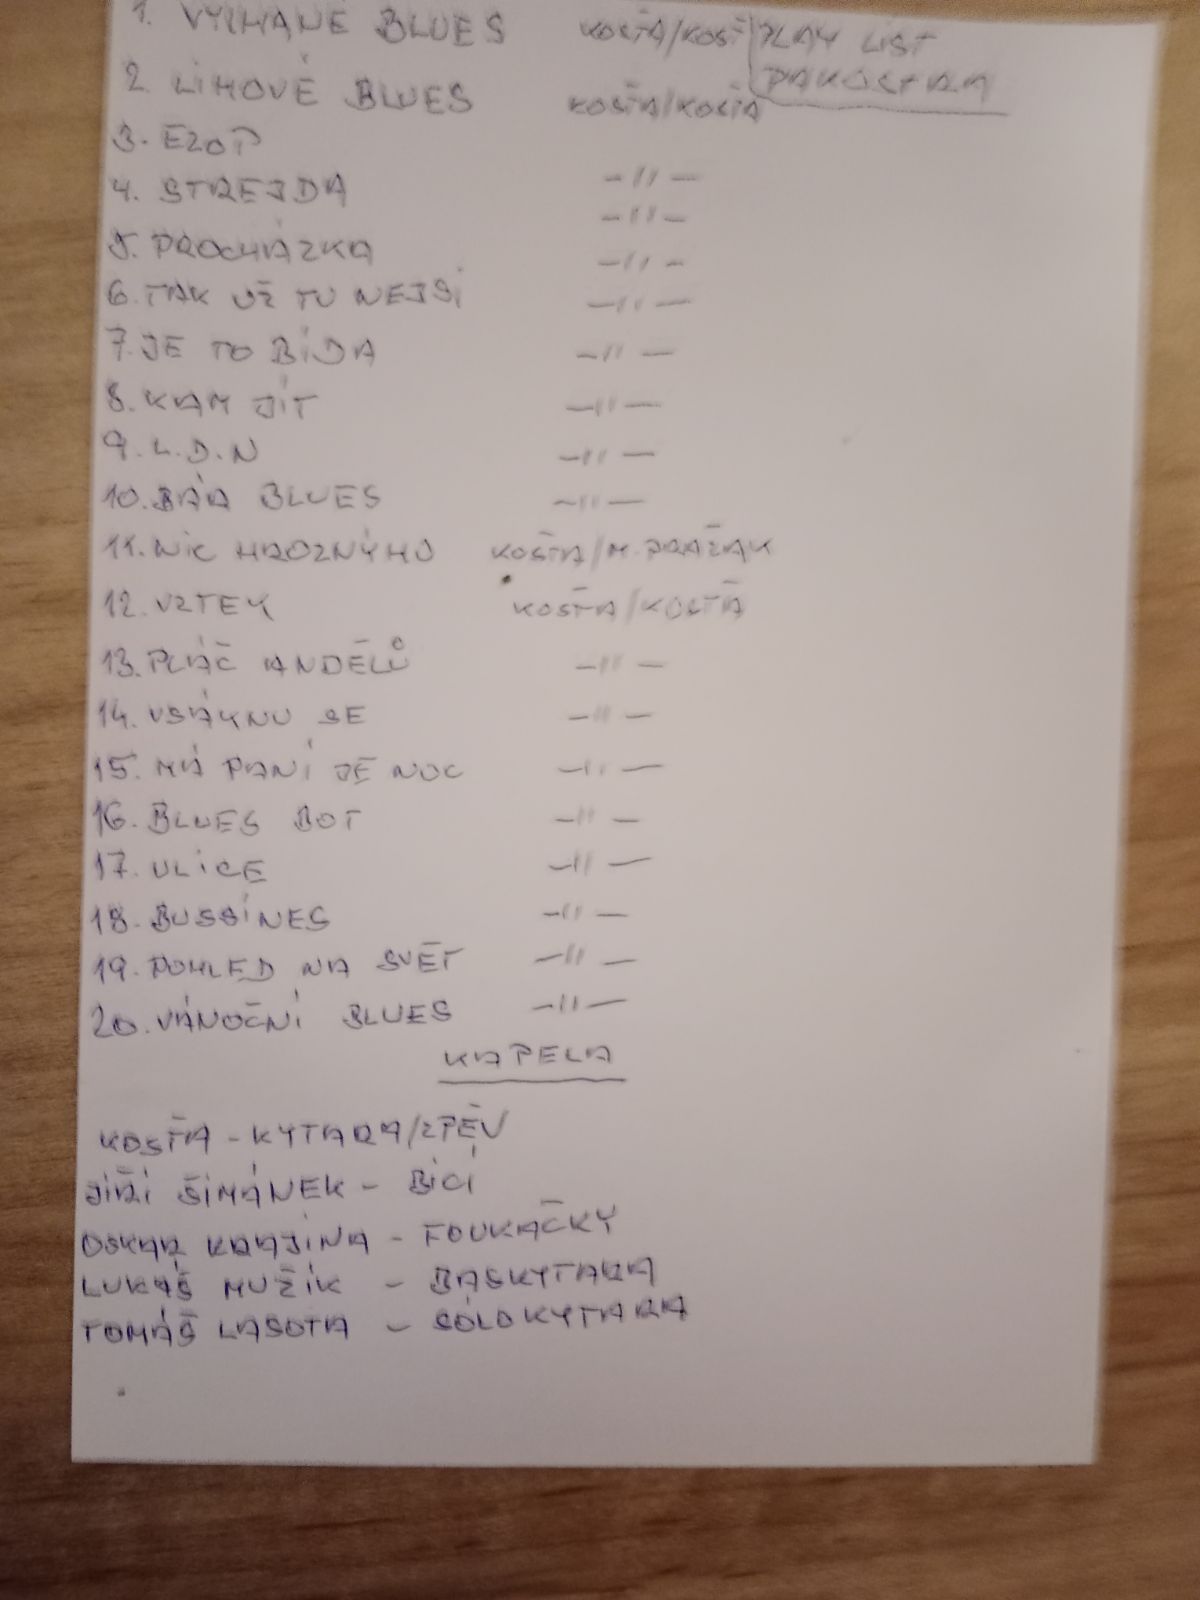 1. VYLHANÉ BLUES KOSŤA/KOSŤ PLAY LIST
PAKOSTRA
2. LIHOVÉ BLUES KOSŤA/KOSŤA
3. EZOP -//-
4. STREJDA -//-
5. PROCHÁZKA -//-
6. TAK UŽ TU NEJSI -//-
7. JE TO BÍDA -//-
8. KAM JÍT -//-
9. L.D.N -//-
10. BÁA BLUES -//-
11. NIC HROZNÝHO KOSŤA/M. PRAŽÁK
12. VZTEK KOSŤA/KOSŤA
13. PLÁČ ANDĚLŮ -//-
14. VSÁKNU SE -//-
15. MÁ PANÍ JE NOC -//-
16. BLUES BOT -//-
17. ULICE -//-
18. BUSSÍNES -//-
19. POHLED NA SVĚT -//-
20. VÁNOČNÍ BLUES -//-
KAPELA
KOSŤA - KYTARA/ZPĚV
JIŘÍ ŠIMÁNEK - BICÍ
OSKAR KRAJINA - FOUKAČKY
LUKÁŠ MUŽÍK - BASKYTARA
TOMÁŠ LASOTA - SÓLO KYTARA